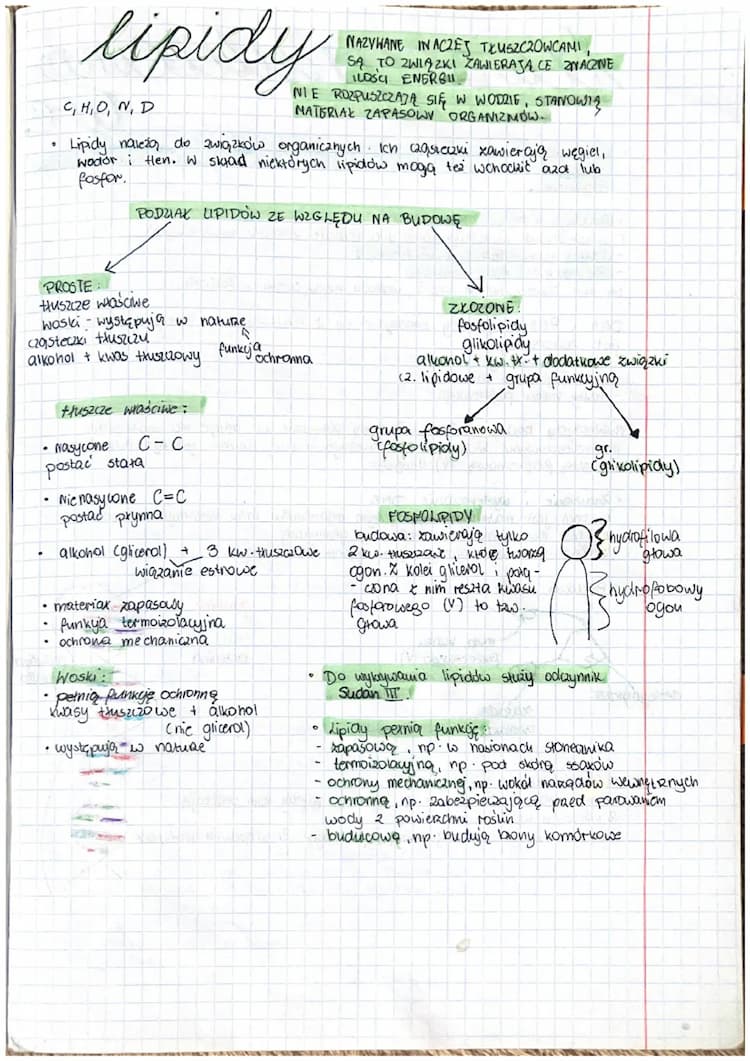 lipidy
NAZYWANE INACZEJ TŁUSZCZOWCAMI,
SĄ TO ZWIĄZKI ZAWIERAJĄCE ZNACZNE
ILOŚCI ENERGII.
NIE ROZPUSZCZAJĄ SIĘ W WODZIE, STANOWIĄ
MATERIAŁ ZAPASOWY ORGANIZMÓW.
C, H, O, N, D
• Lipidy należą do związków organicznych. Ich cząsteczki zawierają węgiel,
wodór i tlen. W skład niektórych lipidów mogą też wchodzić azot lub
fosfor.
PODZIAŁ LIPIDÓW ZE WZGLĘDU NA BUDOWĘ
PROSTE:
tłuszcze właściwe
woski - występują w naturze
cząsteczki tłuszczu
alkohol + kwas tłuszczowy
funkcja
ochronna
ZŁOŻONE:
fosfolipidy
glikolipidy
alkohol + kw. tł. + dodatkowe związki
cz. lipidowe + grupa funkcyjną
grupa fosforanowa
(fosfolipidy)
gr.
(glikolipidy)
tłuszcze właściwe:
• nasycone C-C
postać stała
• Nienasycone C=C
postać płynna
• alkohol (glicerol) + 3 kw. tłuszczowe
wiązanie estrowe
• materiał zapasowy
• funkcja termoizolacyjna
• ochrona mechaniczna
FOSFOLIPIDY
budowa: zawierają tylko
2 kw. tłuszczowe, które tworzą
ogon. Z kolei glicerol i połą-
- czona z nim reszta kwasu
fosforowego (V) to tzw.
głowa
hydrofilowa
głowa
hydrofobowy
ogon
Woski:
• pełnią funkcję ochronną
kwasy tłuszczowe + alkohol
(nie glicerol)
• występują w naturze
• Do wykrywania lipidów służy odczynnik
Sudan III.
• Lipidy pełnią funkcję:
- zapasową, np. w nasionach słonecznika
- termoizolacyjną, np. pod skórą ssaków
- ochrony mechanicznej, np. wokół narządów wewnętrznych
- ochronną, np. zabezpieczającą przed parowaniem
wody z powierzchni roślin
- budulcową, np. budują błony komórkowe